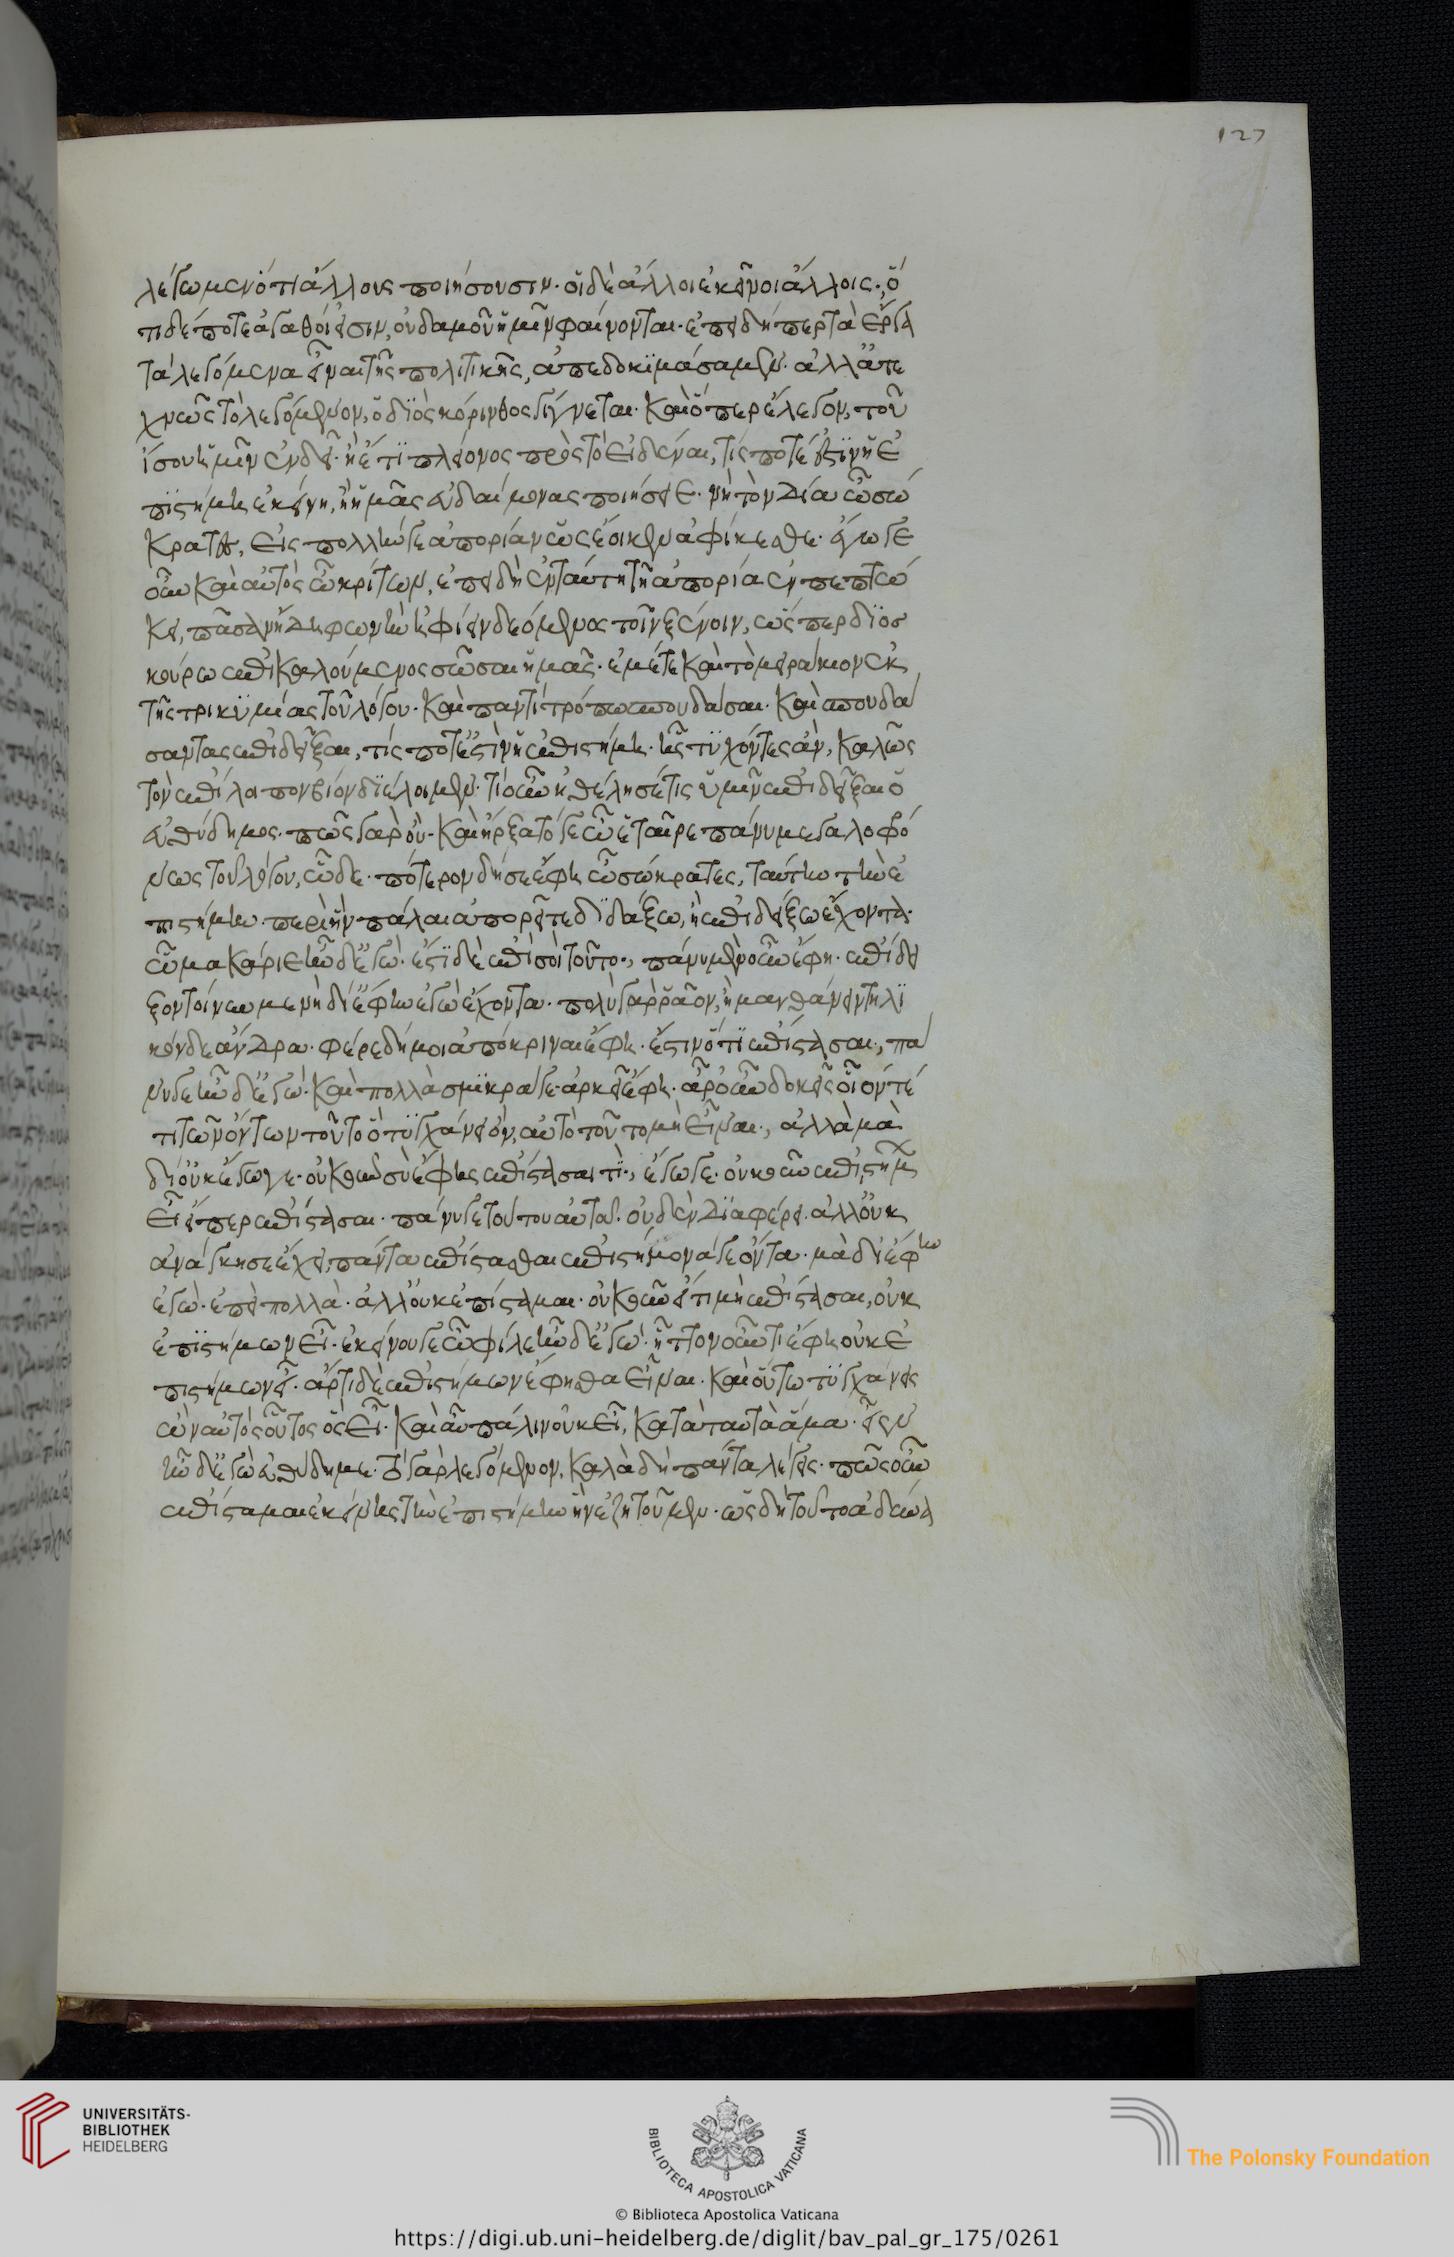 λέγωμεν ὅτι ἄλλους ποιήσουσιν· οἱ δὲ ἄλλοι ἐκεῖνοι ἄλλοις· ὅ
τι δέ ποτε ἀγαθοί εἰσιν, οὐδαμοῦ ἡμῖν φαίνονται· ἐπειδήπερ τὰ ἔργα
τὰ λεγόμενα εἶναι τῆς πολιτικῆς, ἀπεδοκϊμάσαμεν· ἀλλ' ἀτε
χνῶς τὸ λεγόμενον, ὁ διὸς κόρινθος γίγνεται· καὶ ὅπερ ἔλεγον, τοῦ
ἴσου ἡμῖν ἐνδεῖ· ἢ ἔτι πλείονος πρὸς τὸ εἰδέναι, τίς ποτέ ἐστιν ἡ ἐ
πιστήμη ἐκείνη, ἣ ἡμᾶς εὐδαίμονας ποιήσειε· νὴ τὸν Δία ὦ σώ
κρατες, εἰς πολλήν γε ἀπορίαν ὡς ἔοικεν ἀφίκεσθε· ἔγωγε
οὖν καὶ αὐτὸς ὦ κρίτων, ἐπειδὴ ἐν ταύτη τῆ ἀπορία ἐνεπεπτώ
κει, πᾶσαν ἤδη φωνὴν ἠφίειν δεόμενος τοῖν ξένοιν, ὥσπερ διοσ
κούρω ἐπικαλούμενος σῶσαι ἡμᾶς· ἐμέ τε καὶ τὸ μειράκιον ἐκ
τῆς τρικυμίας τοῦ λόγου· καὶ παντὶ τρόπω σπουδάσαι· καὶ σπουδά
σαντας ἐπιδεῖξαι, τίς ποτ' ἐστὶν ἡ ἐπιστήμη· ἧς τυχόντες ἂν, καλῶς
τὸν ἐπίλοιπον βίον διέλθοιμεν· τί οὖν ἠθέλησέ τις ὑμῖν ἐπιδεῖξαι ὁ
εὐθύδημος· πῶς γὰρ οὔ· καὶ ἤρξατό γε ὦ ἑταῖρε πάνυ μεγαλοφρό
νως τοῦ λόγου, ὧδε· πότερον δή σε ἔφη ὦ σώκρατες, ταύτην τὴν ἐ
πιστήμην περὶ ἣν πάλαι ἀπορεῖτε διδάξω, ἢ ἐπιδείξω ἔχοντα·
ὦ μακάριε ἦν δ' ἐγώ· ἔστι δὲ ἐπὶ σοὶ τοῦτο·, πάνυ μὲν οὖν ἔφη· ἐπίδει
ξον τοίνυν με νὴ δί' ἔφην ἐγὼ ἔχοντα· πολὺ γὰρ ῥᾶον, ἢ μανθάνειν τηλι
κόνδε ἄνδρα· φέρε δή μοι ἀπόκριναι ἔφη· ἔστιν ὅτι ἐπίστασαι·, πά
νυ γε ἦν δ' ἐγώ· καὶ πολλὰ σμικρά γε· ἀρκεῖ ἔφη· ἆρ' οὖν δοκεῖς οἷόν τέ
τι τῶν ὄντων τοῦτο ὃ τυγχάνει ὂν, αὐτὸ τοῦτο μὴ εἶναι·, ἀλλὰ μὰ
δί' οὐκ ἔγωγε· οὐκοῦν σὺ ἔφης ἐπίστασαι τὶ·, ἔγωγε· οὐκοῦν ἐπιστήμων
εἶ εἴπερ ἐπίστασαι· πάνυ γε τούτου αὐτοῦ· οὐδὲν Διαφέρει· ἀλλ' οὐκ
ἀνάγκη σε ἔχει, πάντα ἐπίστασθαι ἐπιστήμονά γε ὄντα· μὰ δί' ἔφην
ἐγώ· ἐπεὶ πολλὰ ἀλλ' οὐκ ἐπίσταμαι· οὐκοῦν εἴ τι μὴ ἐπίστασαι, οὐκ
ἐπιστήμων εἶ· ἐκείνου γε ὦ φίλε ἦν δ' ἐγώ· ἧττον οὖν τι ἔφη οὐκ ἐ
πιστήμων εἶ· ἄρτι δὲ ἐπιστήμων ἔφησθα εἶναι· καὶ οὕτω τυγχάνεις
ὢν αὐτὸς οὗτος ὃς εἶ· καὶ αὖ πάλιν οὐκ εἶ, κατὰ ταυτὰ ἅμα· εἶεν
ἦν δ' ἐγὼ εὐθύδημε· τὸ γὰρ λεγόμενον, καλὰ δὴ πάντα λέγεις· πῶς οὖν
ἐπίσταμαι ἐκείνης τὴν ἐπιστήμην ἣν ἐζητοῦμεν· ὡς δὴ τοῦτο ἀδύνα
127
UNIVERSITÄTS-
BIBLIOTHEK
HEIDELBERG
BIBLIOTECA APOSTOLICA VATICANA
The Polonsky Foundation
© Biblioteca Apostolica Vaticana
https://digi.ub.uni-heidelberg.de/diglit/bav_pal_gr_175/0261